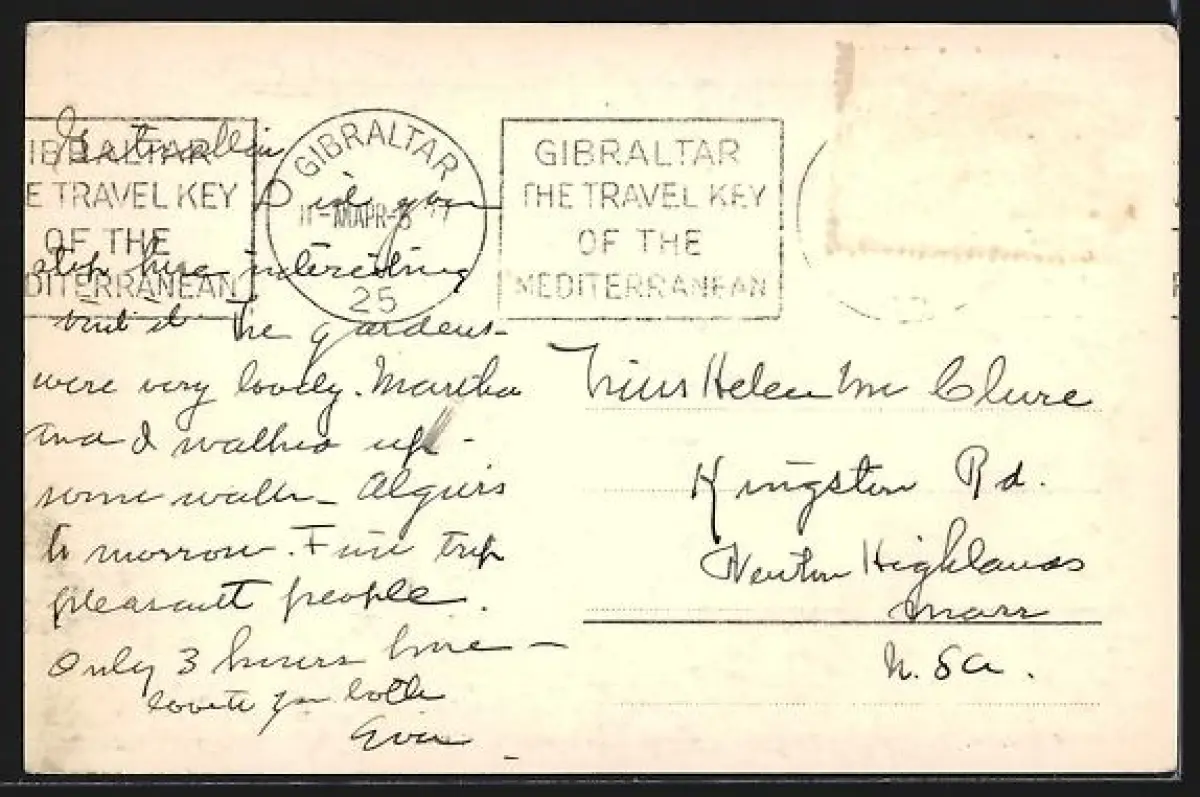 GIBRALTAR
THE TRAVEL KEY
OF THE
MEDITERRANEAN
GIBRALTAR
AMAPR-
25
IBRALTAR
E TRAVEL KEY
OF THE
DITERRANEAN
Did you
stop here interesting
The gardens
were very lovely. Martha
and I walked up -
some walk - Algiers
to morrow. Fine trip
pleasant people.
Only 3 hours here -
love to you both
Miss Helen Mc Clure
Kingston Rd.
Newton Highlands
Mass
U.S.a.